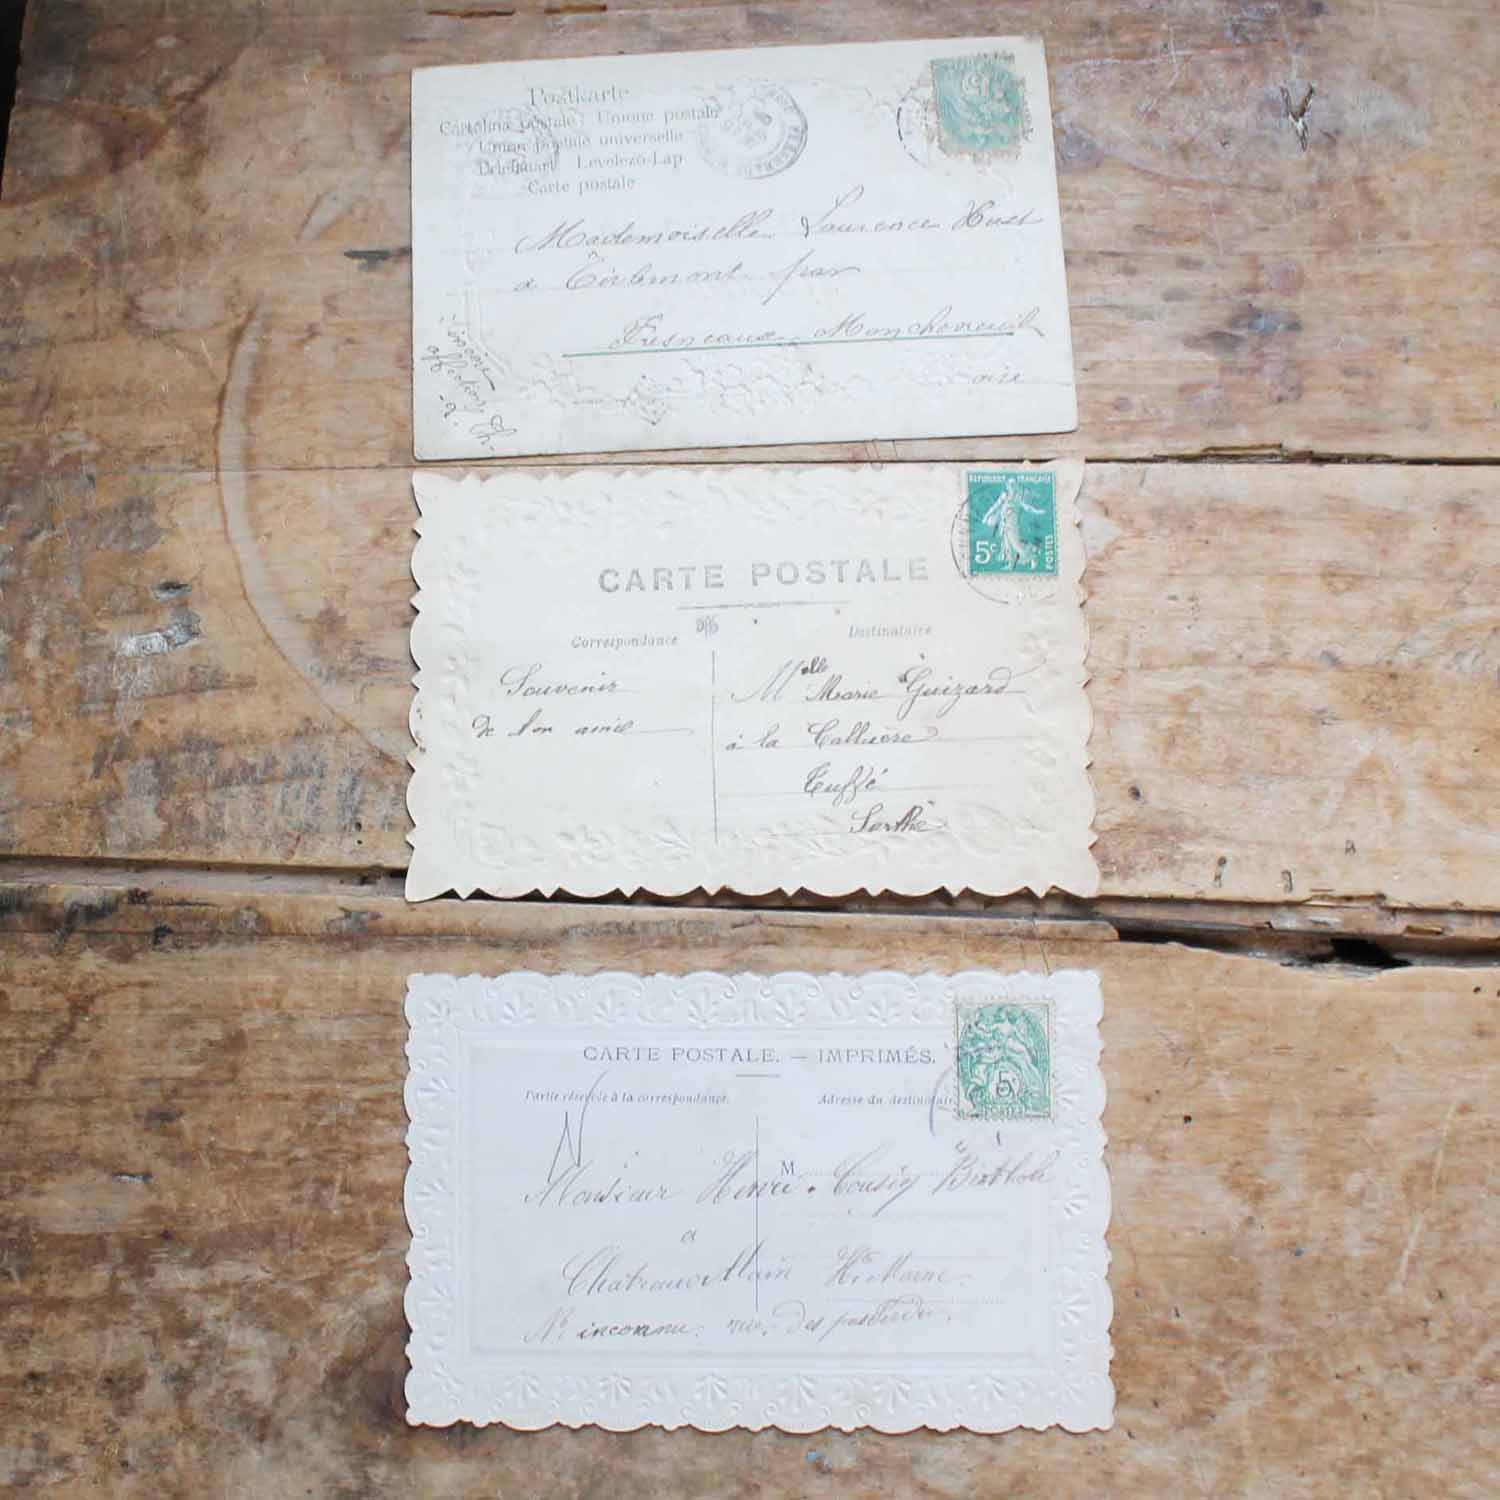 Postkarte
Cartolina postale Unione postale
Union postale universelle
Levelezö-Lap
Carte postale
Mademoiselle Laurence Huet
à Tirlemont par
Fresneaux-Montchevreuil
Oise
Sincère
affection
L. Th.
REPUBLIQUE FRANÇAISE
5c
POSTES
CARTE POSTALE
Correspondance
Destinataire
Souvenir
de ton amie
Melle Marie Guizard
à la
Tuffé
Sarthe
5
POSTES
CARTE POSTALE. — IMPRIMÉS.
Partie réservée à la correspondance.
Adresse du destinataire
M
Monsieur Henri Cousin
a
Chateauvillain Hte Marne.
No inconnu. rue des